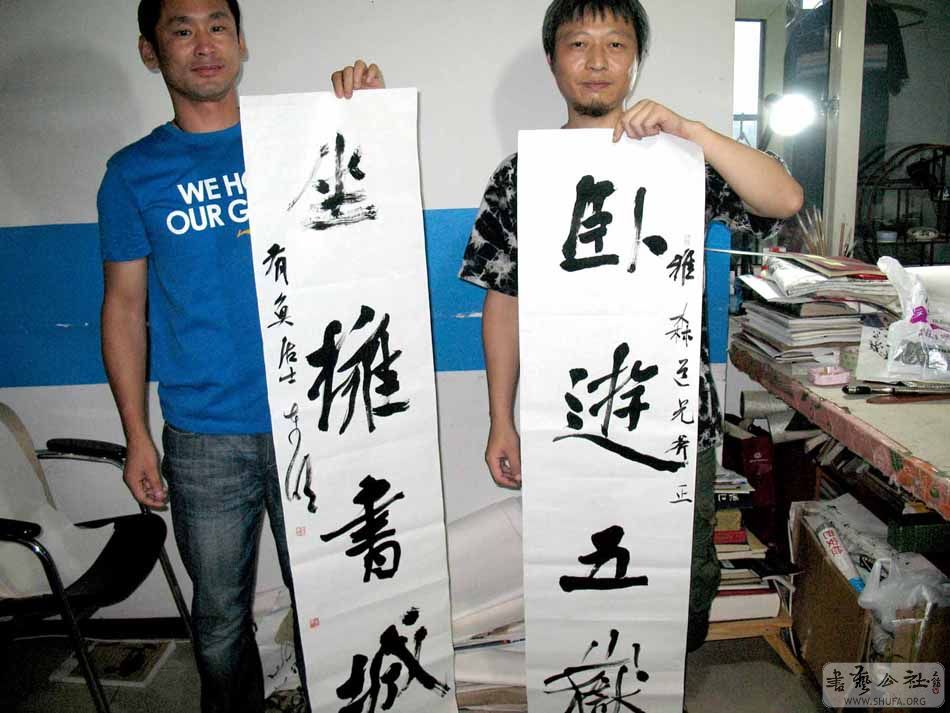 卧遊五嶽
雅森道兄斧正
坐擁書城
有魚居士
WE HO
OUR G
書藝公社
WWW.SHUFA.ORG